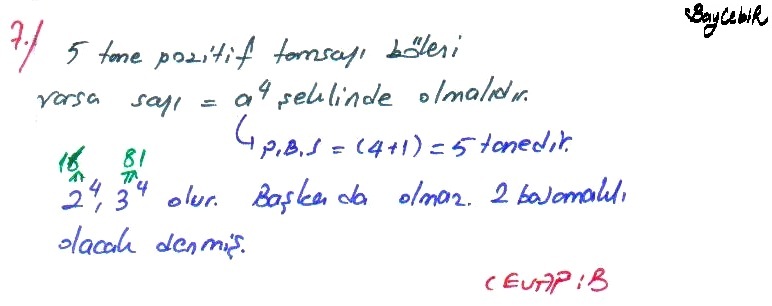 BayCebir
7./ 5 tane pozitif tamsayı böleni
varsa sayı = a⁴ şeklinde olmalıdır.
↳ P.B.S = (4+1) = 5 tanedir.
16 81
2⁴, 3⁴ olur. Başka da olmaz. 2 basamaklı
olacak denmiş.
CEVAP : B